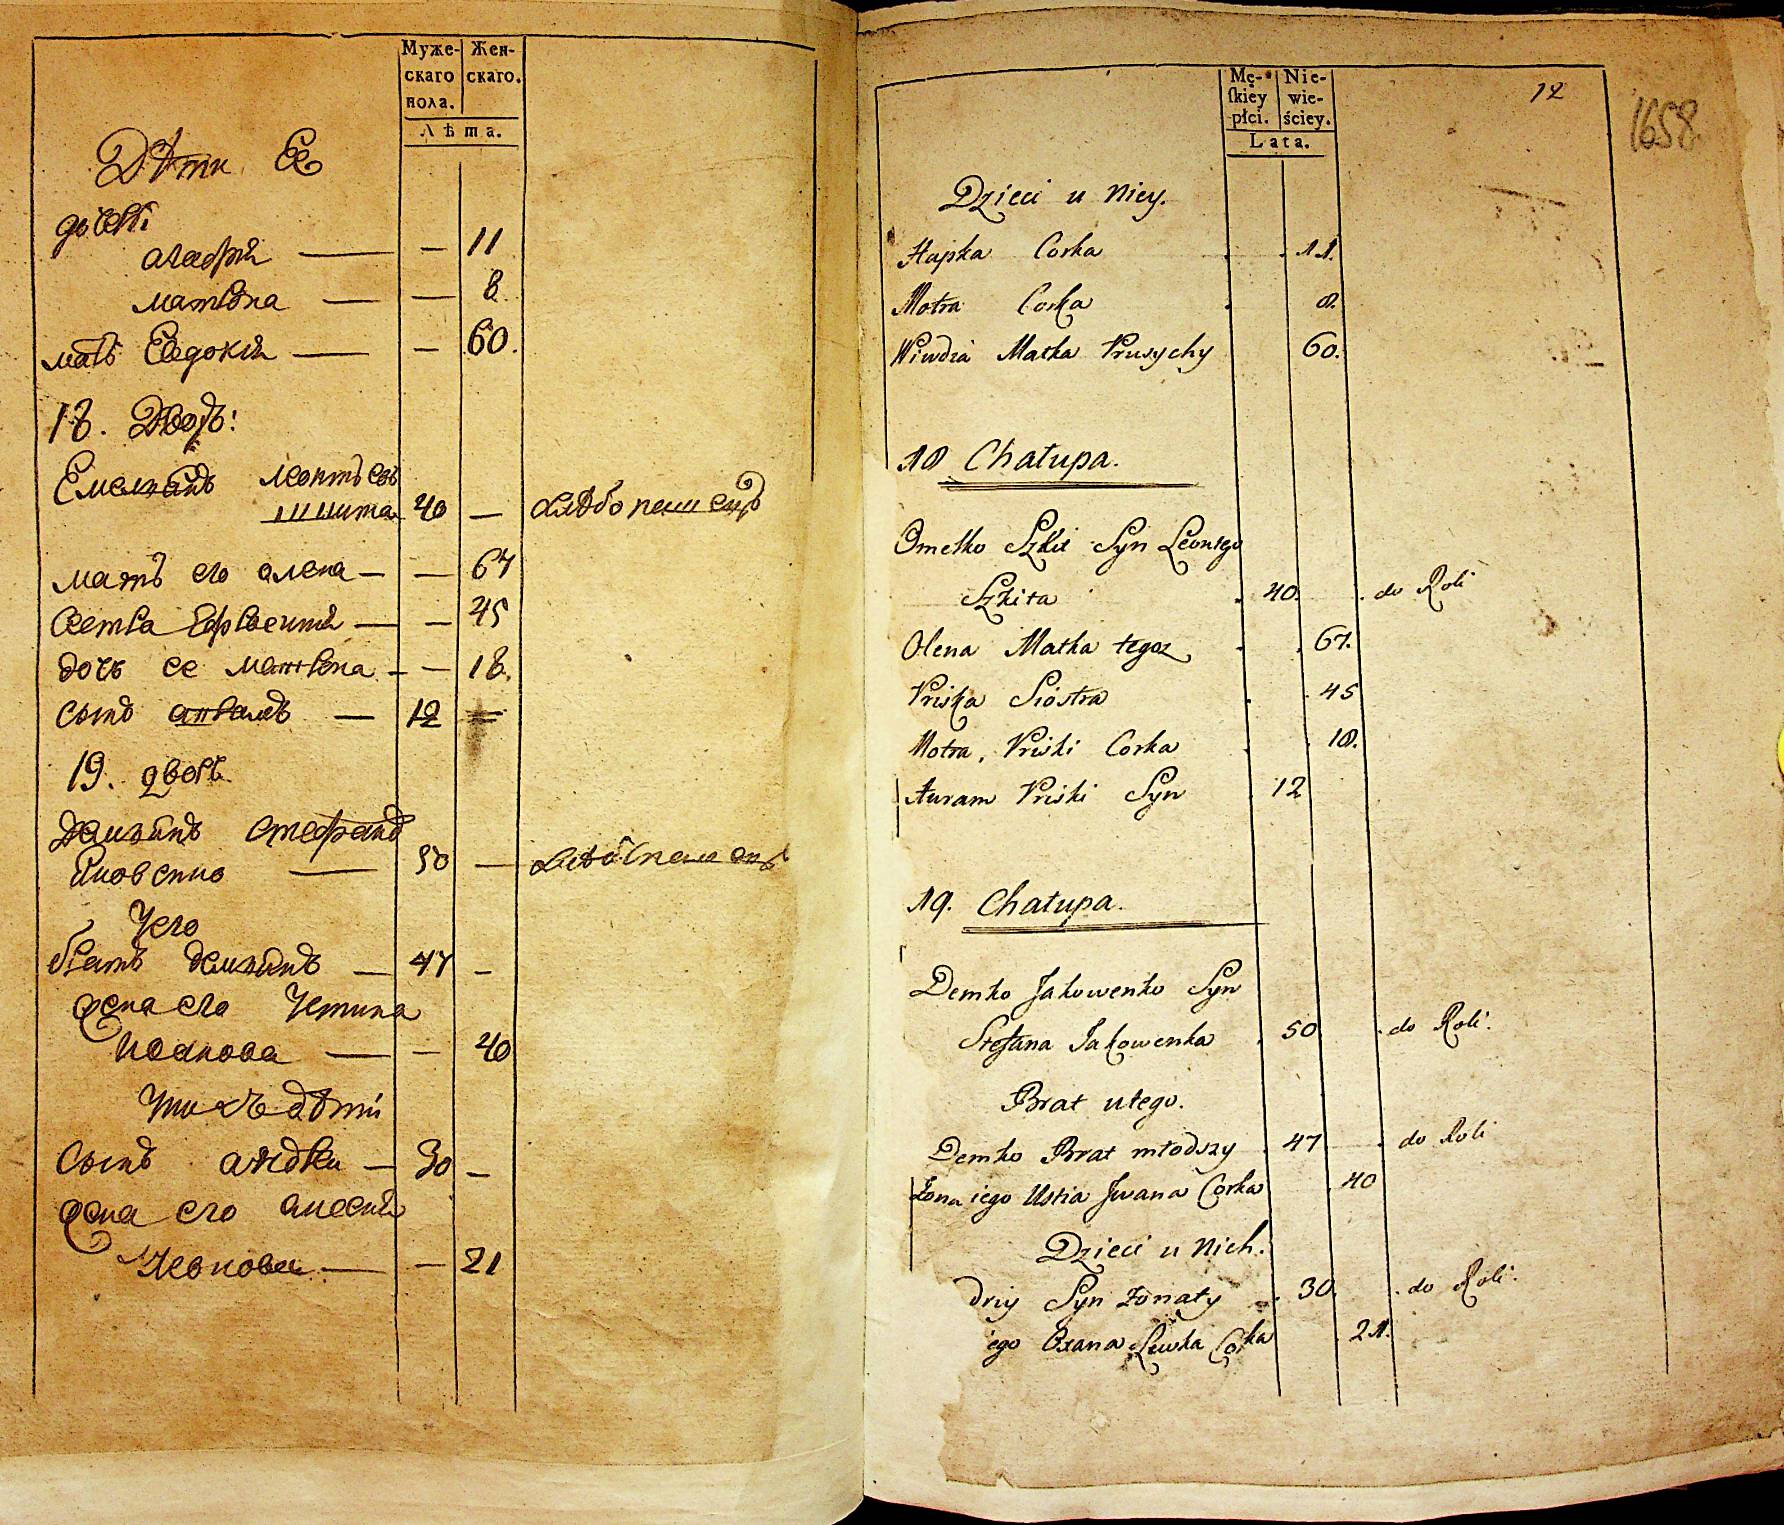 Муже-
скаго
пола.
Жен-
скаго.
Лѣта.
Дѣти Ее
дочери
агафия — — 11
матрона — — 8
мать Евдокия — — 60.
18. Дворъ:
Емельянъ леонтьевъ
шкита 40 — хлѣбопашецъ
мать его алена — — 67
Сестра Ефросиния — — 45
дочь ее матрона — — 18.
Сынъ авраамъ — 12 —
19. дворъ
демьянъ стефановъ
Яковенко — 50 — хлѣбопашецъ
У его
братъ демьянъ — 47 —
жена его Устина
Иванова — — 40
У нихъ дѣти
Сынъ андрей — 30 —
жена его
Леонова — — 21
Mę-
ſkiey
płci.
Nie-
wie-
ściey.
Lata.
12
1658.
Dzieci u Niey.
Hapka Corka 11.
Motra Corka 8.
Wiwdia Matka Prusychy 60.
18 Chałupa.
Omelko Szkit Syn Leontego
Szkita 40. do Roli
Olena Matka tegoz 67.
Priska Siostra 45
Motra, Priski Corka 18.
Awram Priski Syn 12
19. Chałupa.
Demko Jakowenko Syn
Stefana Jakowenka 50 do Roli.
Brat u tego.
Demko Brat młodszy 47 do Roli
Zona iego Ustia Jwana Corka 40
Dzieci u Nich.
driy Syn żonaty 30. do Roli.
iego Oxana Lewka Corka 21.